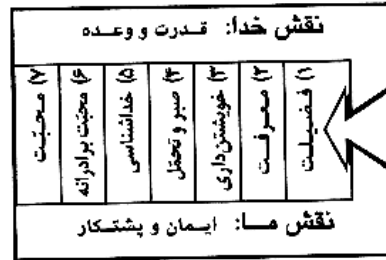 نقش خدا: قدرت و وعده
۱) فضیلت
۲) معرفت
۳) خویشتن‌داری
۴) صبر و تحمّل
۵) خداشناسی
۶) محبّت برادرانه
۷) محبّت
نقش مـا: ایـمان و پشتـکار